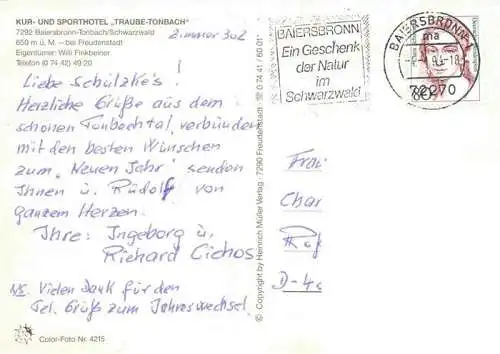 KUR- UND SPORTHOTEL „TRAUBE-TONBACH"
7292 Baiersbronn-Tonbach/Schwarzwald
650 m ü. M. – bei Freudenstadt
Eigentümer: Willi Finkbeiner
Telefon (0 74 42) 49 20
Zimmer 302
Liebe Schützke's!
Herzliche Grüße aus dem
schönen Tonbachtal, verbunden
mit den besten Wünschen
zum „Neuen Jahr" senden
Ihnen u. Rudolf von
ganzem Herzen.
Ihre: Ingeborg u.
Richard Cichos
NS. Vielen Dank für den
Tel. Gruß zum Jahreswechsel.
Color-Foto Nr. 4215
© Copyright by Heinrich Müller Verlag · 7290 Freudenstadt · ☎ 0 74 41 / 60 01
BAIERSBRONN
Ein Geschenk
der Natur
im
Schwarzwald
BAIERSBRONN 1
ma
72270
Frau
Char
D-40